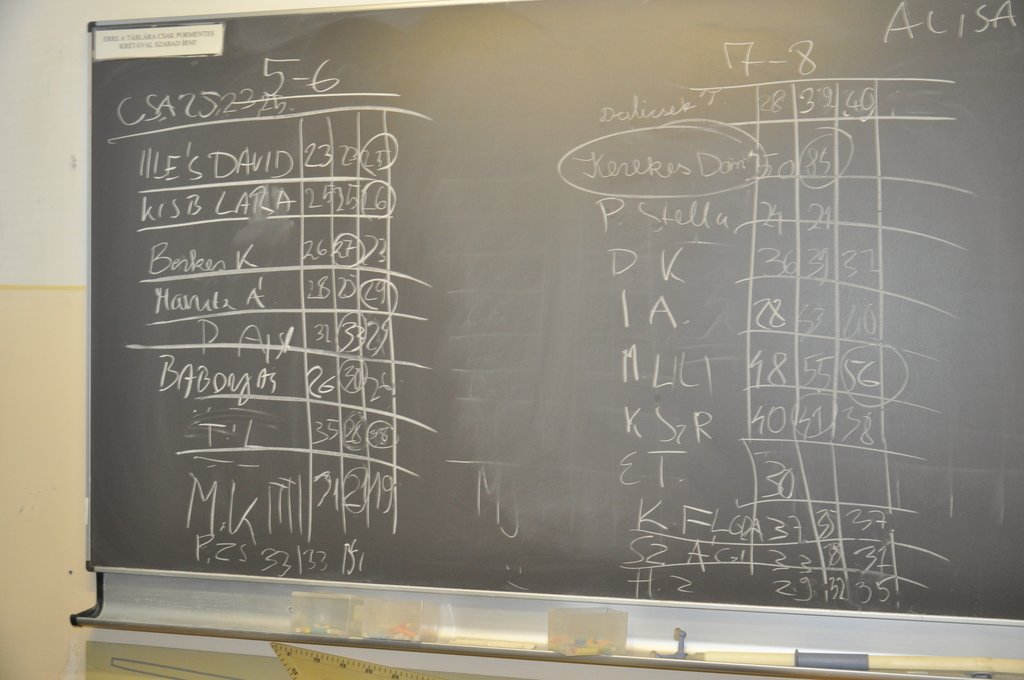 ERRE A TÁBLÁRA CSAK PORMENTES
KRÉTÁVAL SZABAD ÍRNI!
ALISA
5-6
CSA ZS. 23 25.
ILLÉS DAVID 23 23
KISB LARA 25 25 26
Berkes K 26 27 23
28 29
D 31 33 29
BABOLY ÁS 26 30
T. L 35 28 38
M.K 31 21 19
P. ZS 33 33
7-8
T. 28 39 40
Kerekes Dom 50
P. Stella 24 21
D K 36 39 37
I A. 28 43 40
M. LILI 48 55 56
K SZ R 40 41 38
É T. 30
K. FLÓRA 37 35 37
SZ ÁGI 33 8 31
H. Z 29 32 35